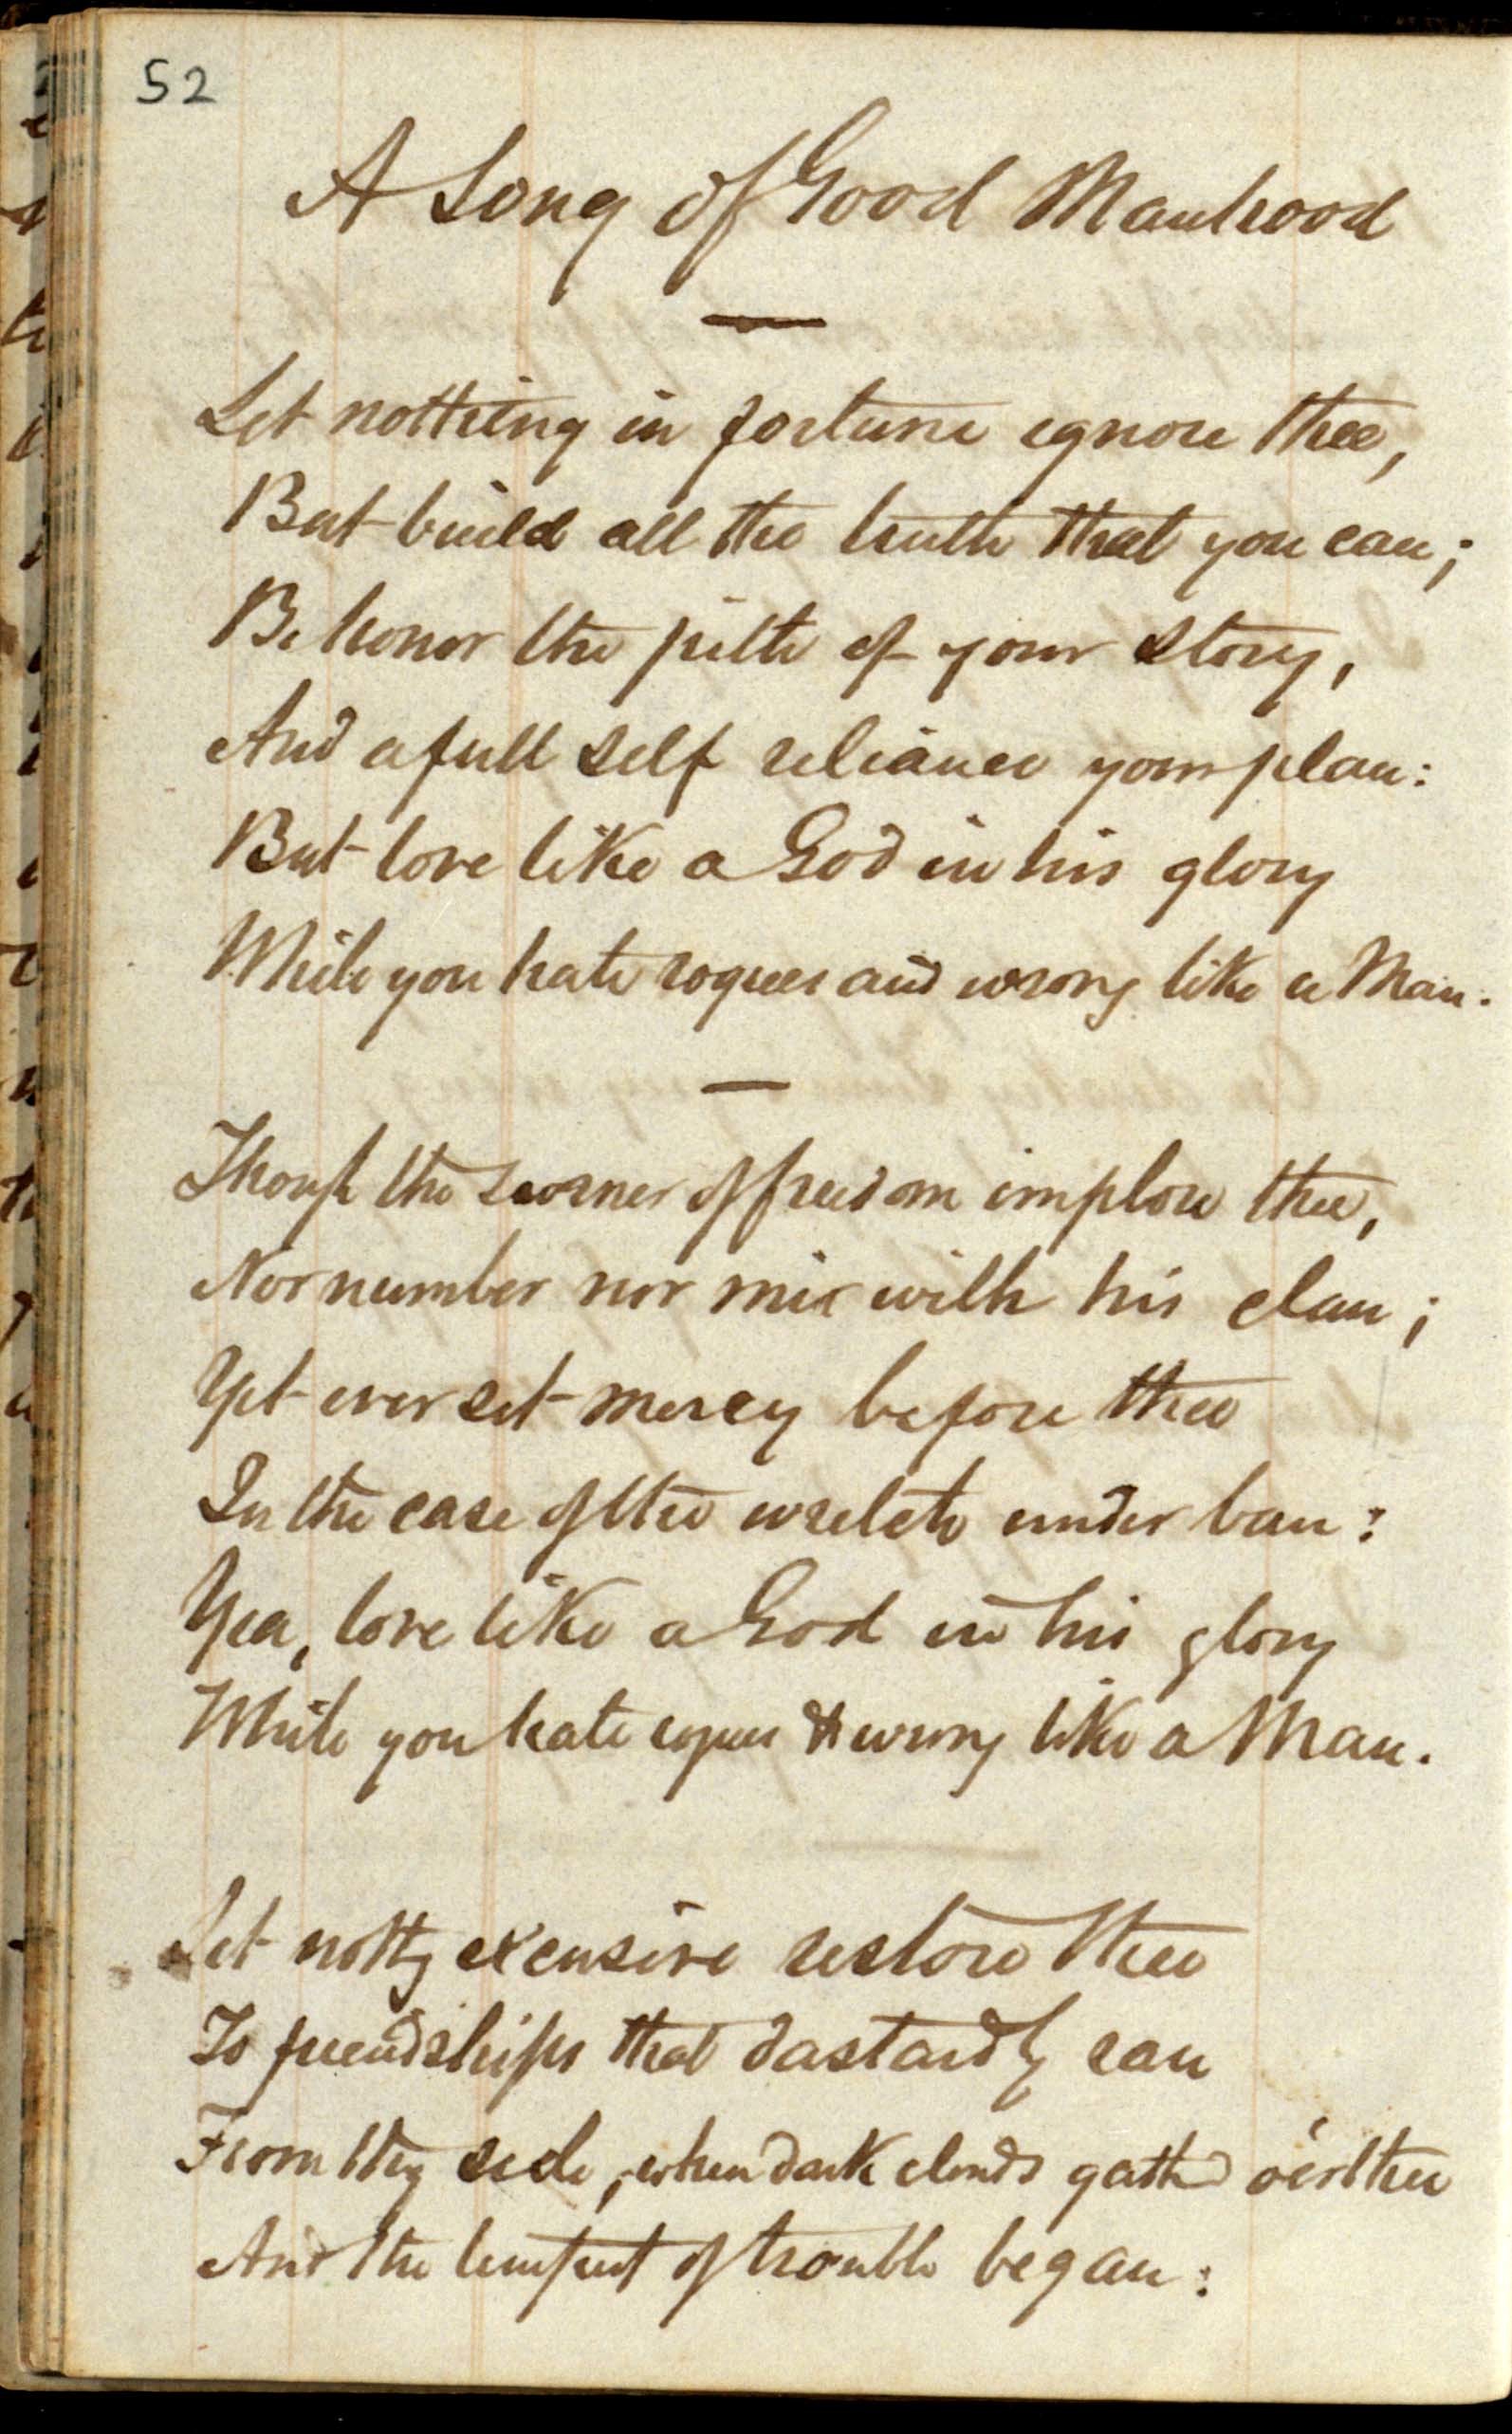 52
A Song of Good Manhood
Let nothing in fortune ignore thee,
But build all the truth that you can;
Be honor the pith of your story,
And a full self reliance your plan:
But love like a God in his glory
While you hate rogues and wrong like a Man.
Though the scorner of freedom implore thee,
Nor number nor mix with his clan;
Yet ever set mercy before thee
In the case of the wretch under ban:
Yea, love like a God in his glory
While you hate rogues & wrong like a Man.
Let nothg excusive restore thee
To friendships that dastardly ran
From thy side, when dark clouds gathd o'er thee
And the tempest of trouble began: